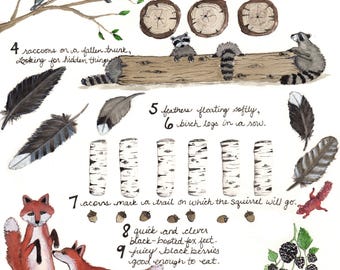 4 raccoons on a fallen trunk,
looking for hidden things
5 feathers floating softly,
6 birch logs in a row.
7 acorns mark a trail on which the squirrel will go.
8 quick and clever
black-booted fox feet.
9 juicy black berries
good enough to eat.